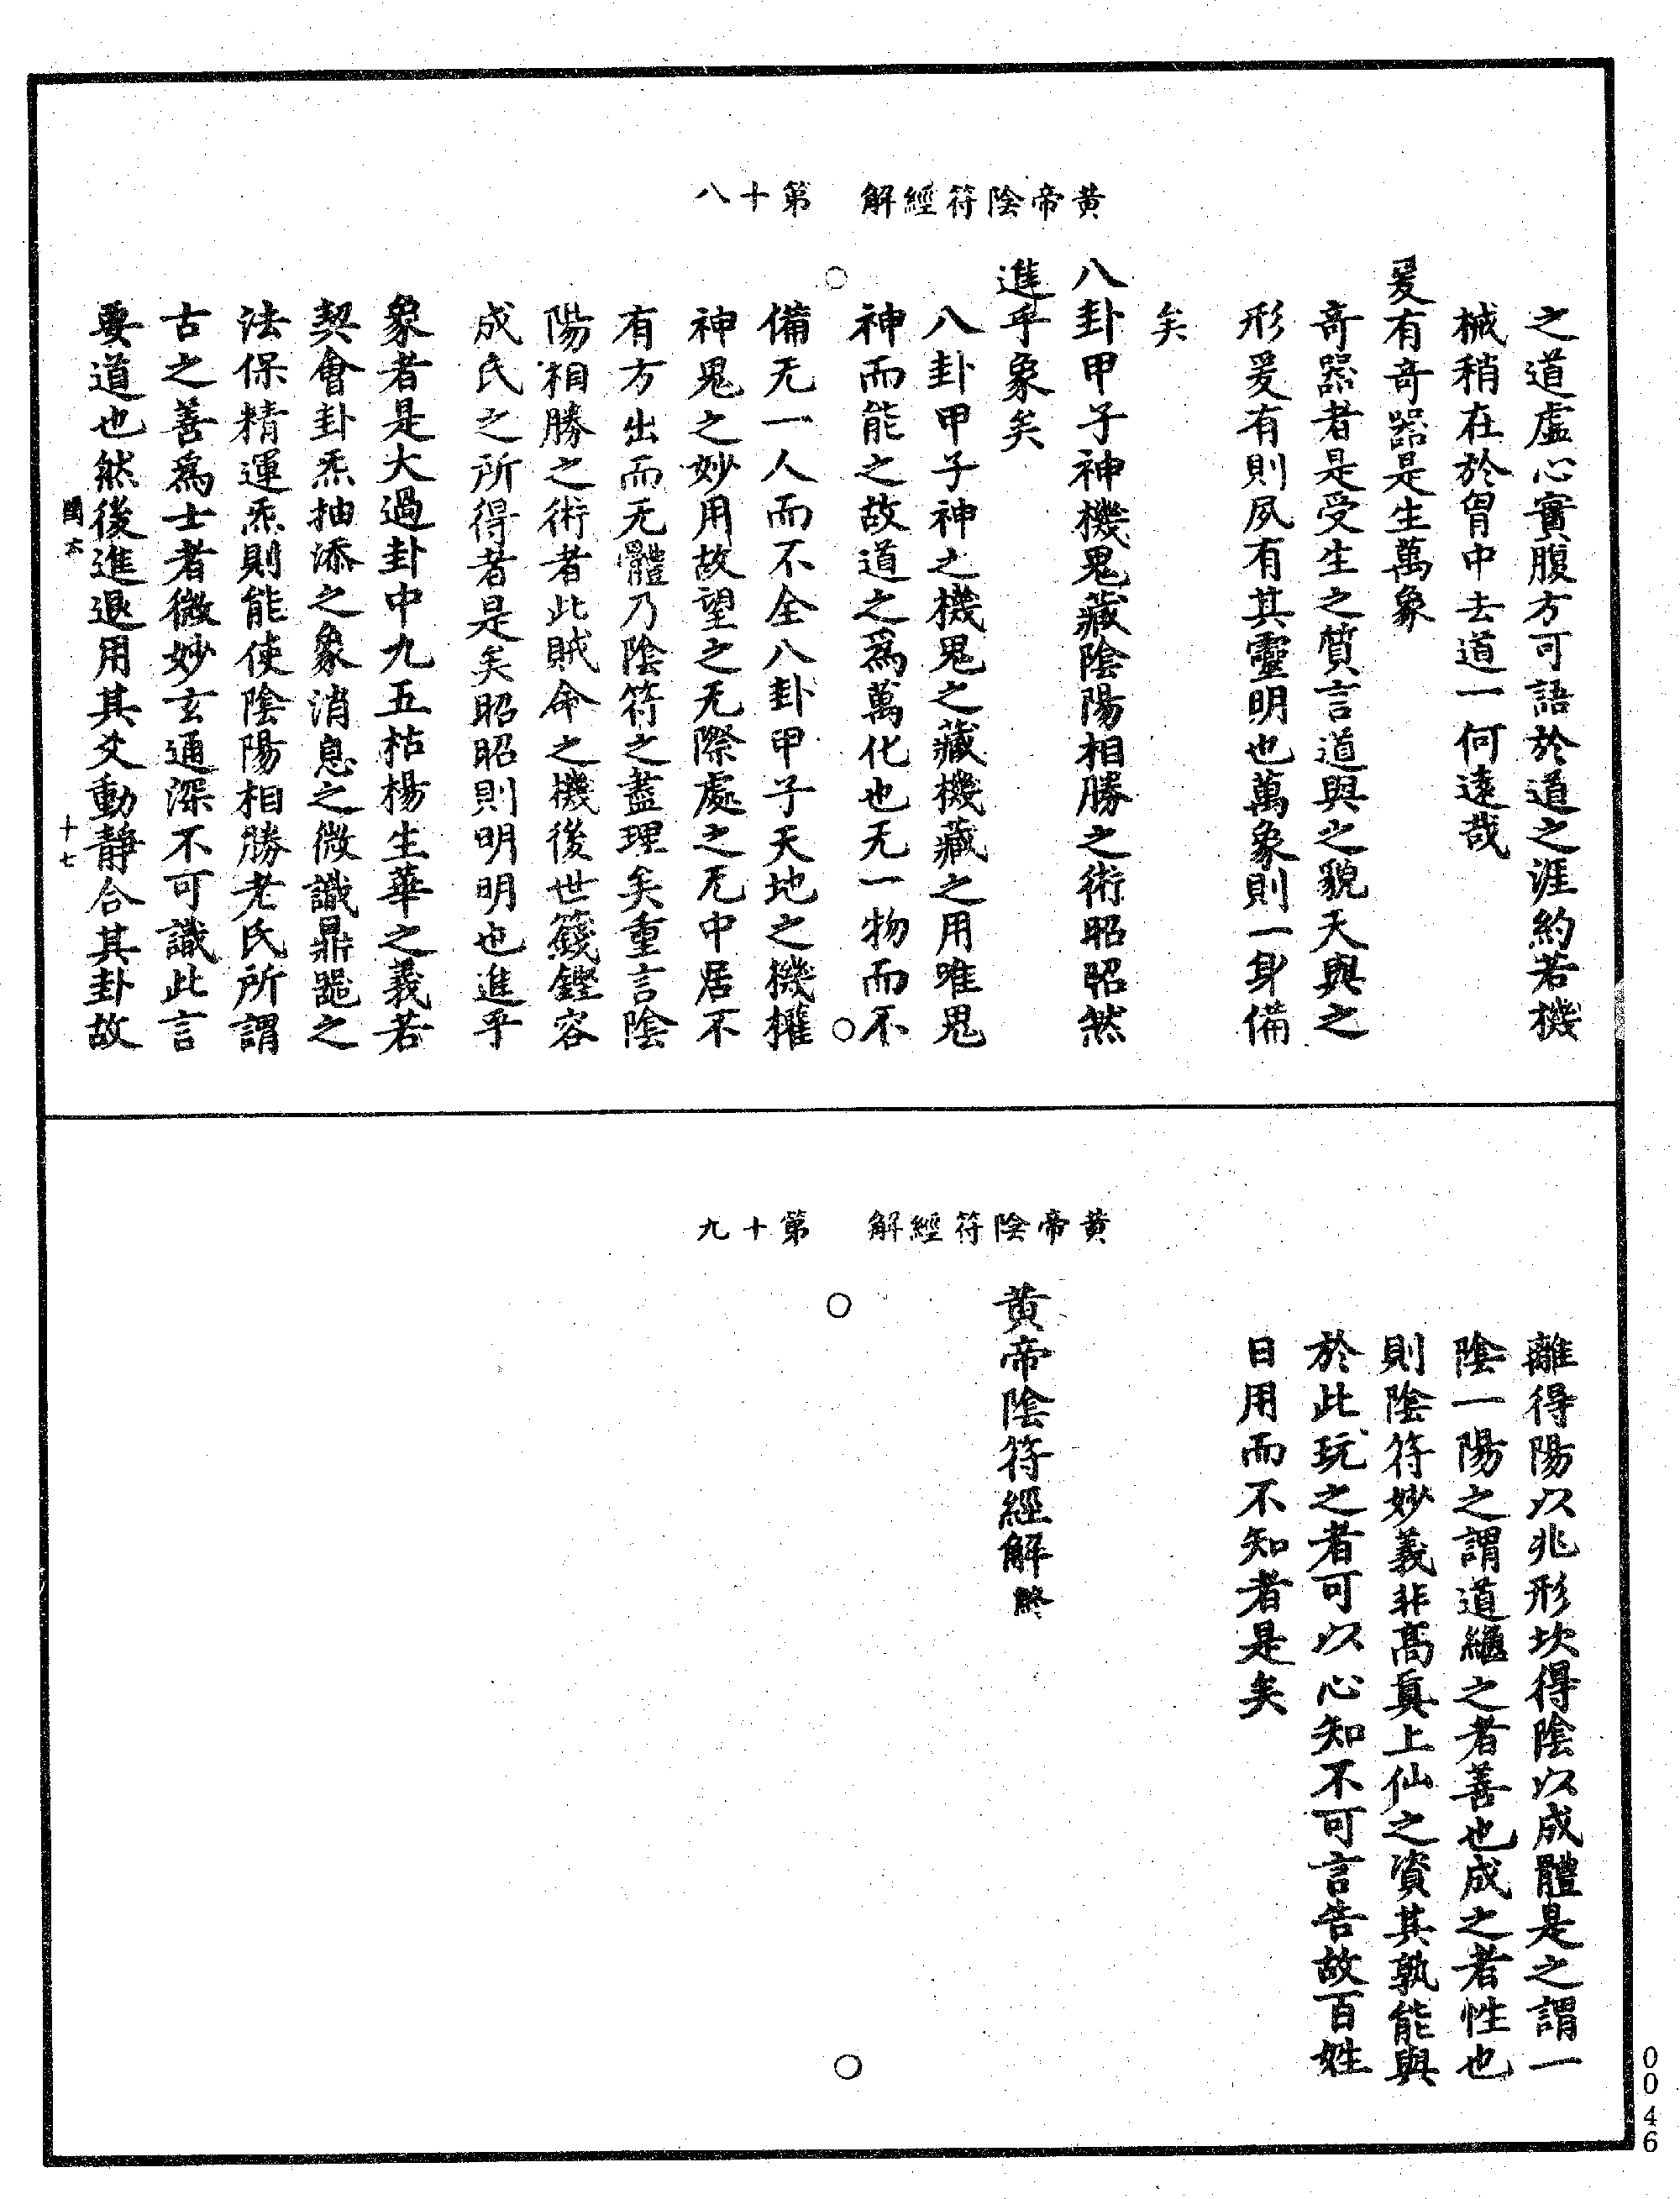 黃帝陰符經解　第十八
之道虛心實腹方可語於道之涯約若機
械稍在於胷中去道一何遠哉
爰有奇器是生萬象
奇器者是受生之質言道與之貌天與之
形爰有則夙有其靈明也萬象則一身備
矣
八卦甲子神機鬼藏陰陽相勝之術昭昭然
進乎象矣
八卦甲子神之機鬼之藏機藏之用唯鬼
神而能之故道之爲萬化也无一物而不
備无一人而不全八卦甲子天地之機權
神鬼之妙用故望之无際處之无中居不
有方出而无體乃陰符之盡理矣重言陰
陽相勝之術者此賊命之機後世籛鏗容
成氏之所得者是矣昭昭則明明也進乎
象者是大過卦中九五枯楊生華之義若
契會卦炁抽添之象消息之微識鼎器之
法保精運炁則能使陰陽相勝老氏所謂
古之善爲士者微妙玄通深不可識此言
要道也然後進退用其爻動靜合其卦故
十七
黃帝陰符經解　第十九
離得陽以兆形坎得陰以成體是之謂一
陰一陽之謂道繼之者善也成之者性也
則陰符妙義非高真上仙之資其孰能與
於此玩之者可以心知不可言告故百姓
日用而不知者是矣
黃帝陰符經解終
0046